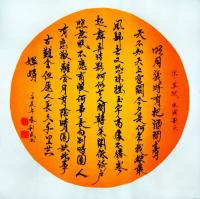 宋 蘇軾 水調歌頭
明月幾時有把酒問青
天不知天上宮闕今夕是何年我欲乘
風歸去又恐瓊樓玉宇高處不勝寒
起舞弄清影何似在人間轉朱閣低綺戶
照無眠不應有恨何事長向別時圓人
有悲歡離合月有陰晴圓缺此事
古難全但願人長久千里共
嬋娟